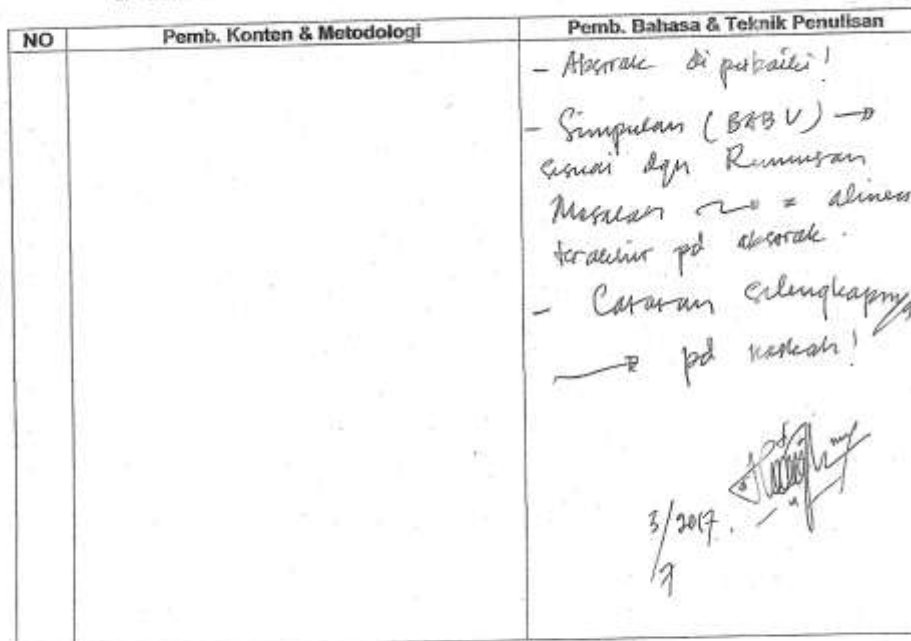 NO
Pemb. Konten & Metodologi
Pemb. Bahasa & Teknik Penulisan
- Abstrak di perbaiki!
- Simpulan (BAB V) →
sesuai dgn Rumusan
Masalah → = alinea
terakhir pd abstrak.
- Catatan selengkapnya
→ pd naskah!
3/2017.
/7